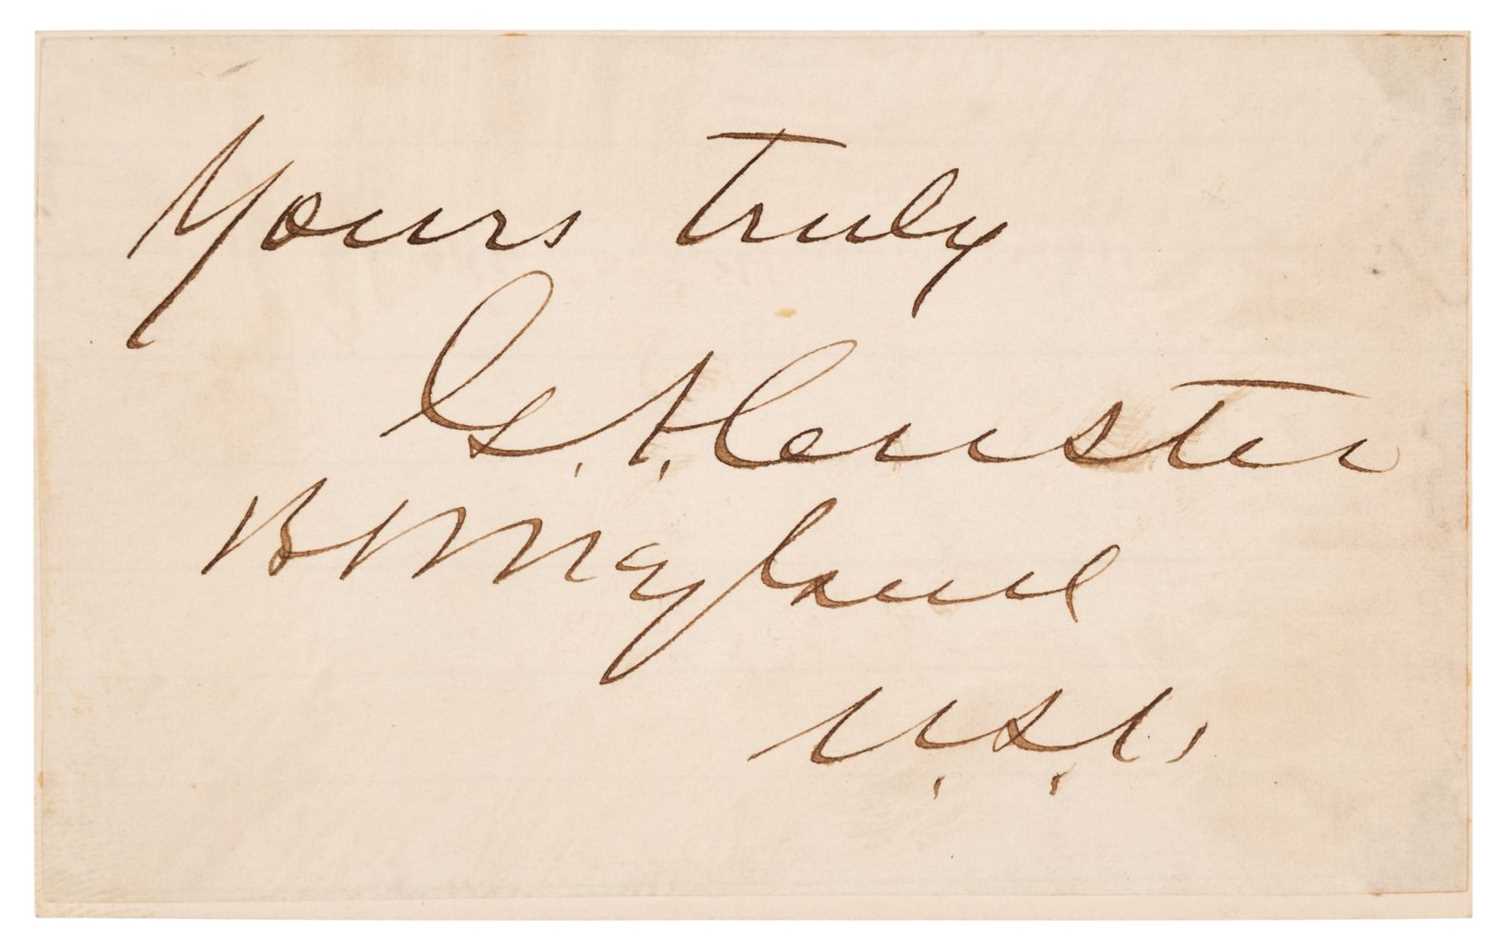 Yours truly
G. A. Custer
Maj Genl
U.S.A.